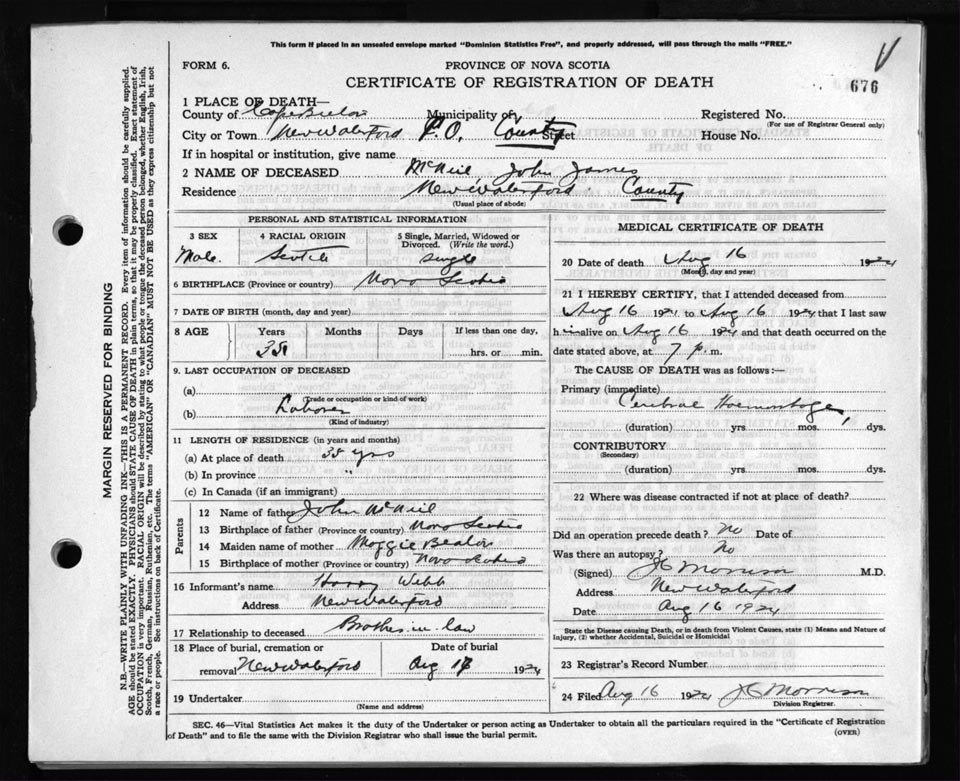 This form if placed in an unsealed envelope marked "Dominion Statistics Free", and properly addressed, will pass through the mails "FREE."
FORM 6.
PROVINCE OF NOVA SCOTIA
CERTIFICATE OF REGISTRATION OF DEATH
676
1 PLACE OF DEATH—
County of Cape Breton Municipality of Registered No.
(For use of Registrar General only)
City or Town New Waterford P.O. County Street House No.
If in hospital or institution, give name
2 NAME OF DECEASED McNeil, John James
Residence New Waterford County
(Usual place of abode)
PERSONAL AND STATISTICAL INFORMATION
3 SEX Male
4 RACIAL ORIGIN Scotch
5 Single, Married, Widowed or Divorced. (Write the word.) Single
6 BIRTHPLACE (Province or country) Nova Scotia
7 DATE OF BIRTH (month, day and year)
8 AGE Years Months Days If less than one day,
hrs. or min.
9. LAST OCCUPATION OF DECEASED
(a)
(Trade or occupation or kind of work)
(b) Laborer
(Kind of industry)
11 LENGTH OF RESIDENCE (in years and months)
(a) At place of death yrs
(b) In province "
(c) In Canada (if an immigrant)
Parents
12 Name of father John McNeil
13 Birthplace of father (Province or country) Nova Scotia
14 Maiden name of mother Maggie Beaton
15 Birthplace of mother (Province or country) Nova Scotia
16 Informant's name Harry Webb
Address New Waterford
17 Relationship to deceased Brother-in-law
18 Place of burial, cremation or removal New Waterford
Date of burial Aug 1924
19 Undertaker
(Name and address)
MEDICAL CERTIFICATE OF DEATH
20 Date of death Aug 16 1924
(Month, day and year)
21 I HEREBY CERTIFY, that I attended deceased from
Aug 16 1924 to Aug 16 1924 that I last saw
h im alive on Aug 16 1924 and that death occurred on the
date stated above, at 7 p.m.
The CAUSE OF DEATH was as follows:—
Primary (immediate)
Cerebral Haemorrhage
(duration) yrs mos. dys.
CONTRIBUTORY
(Secondary)
(duration) yrs mos. dys.
22 Where was disease contracted if not at place of death?
Did an operation precede death? No Date of
Was there an autopsy? No
(Signed) Morrison M.D.
Address New Waterford
Date Aug 16 1924
State the Disease causing Death, or in death from Violent Causes, state (1) Means and Nature of
Injury, (2) whether Accidental, Suicidal or Homicidal
23 Registrar's Record Number
24 Filed Aug 16 1924 Morrison
Division Registrar.
SEC. 46—Vital Statistics Act makes it the duty of the Undertaker or person acting as Undertaker to obtain all the particulars required in the "Certificate of Registration
of Death" and to file the same with the Division Registrar who shall issue the burial permit.
(OVER)
MARGIN RESERVED FOR BINDING
N.B.—WRITE PLAINLY WITH UNFADING INK—THIS IS A PERMANENT RECORD. Every item of information should be carefully supplied.
AGE should be stated EXACTLY. PHYSICIANS should STATE CAUSE OF DEATH in plain terms, so that it may be properly classified. Exact statement of
OCCUPATION is very important. RACIAL ORIGIN will be described by stating to what people or tongue the deceased person belonged, whether English, Irish,
Scotch, French, German, Russian, Ruthenian, etc. The terms "AMERICAN" OR "CANADIAN" MUST NOT BE USED as they express citizenship but not
a race or people. See instructions on back of Certificate.